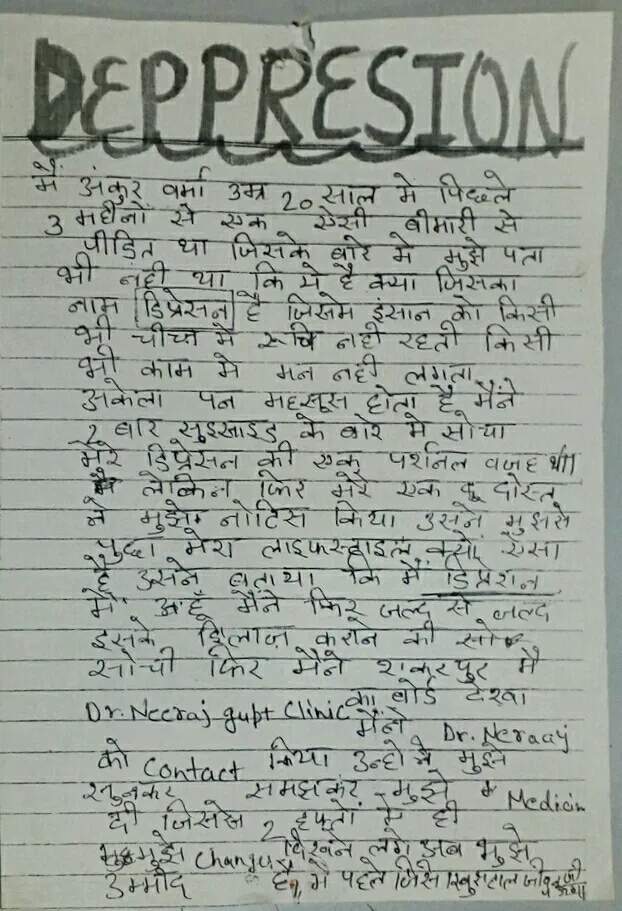 DEPPRESION
मैं अंकुर वर्मा उम्र 20 साल मे पिछले
3 महीनों से एक ऐसी बीमारी से
पीड़ित था जिसके बारे मे मुझे पता
भी नही था कि ये है क्या जिसका
नाम डिप्रेसन है जिसमे इंसान को किसी
भी चीज मे रूचि नही रहती किसी
भी काम मे मन नही लगता
अकेला पन महसूस होता है मैंने
2 बार सुइसाइड के बारे मे सोचा
मेरे डिप्रेसन की एक पर्शनल वजह थी।
लेकिन फिर मेरे एक दोस्त
ने मुझे नोटिस किया उसने मुझसे
पुछा मेरा लाइफस्टाइल क्यों ऐसा
है उसने बताया कि मैं डिप्रेशन
में हूँ मैंने फिर जल्द से जल्द
इसके इलाज़ कराने की
सोची फिर मैंने शकरपुर मै
Dr. Neeraj gupt Clinic का बोर्ड देखा
मैंने Dr. Neraaj
को Contact किया उन्होने मुझे
सुनकर समझकर मुझे Medicin
दी जिससे 2 हफ्तो मे ही
मुझे दिखने लगे अब मुझे
उम्मीद है, मै पहले जिसे खुशहाल